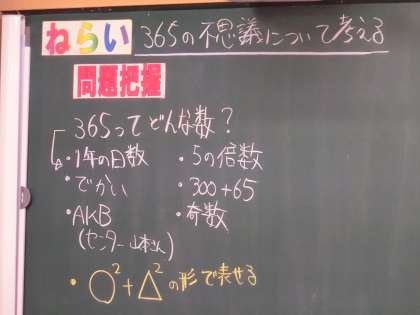 ねらい 365の不思議について考える
問題把握
365ってどんな数?
・1年の日数 ・5の倍数
・でかい ・300+65
・AKB ・奇数
(センター山本さん)
・○²+△²の形で表せる